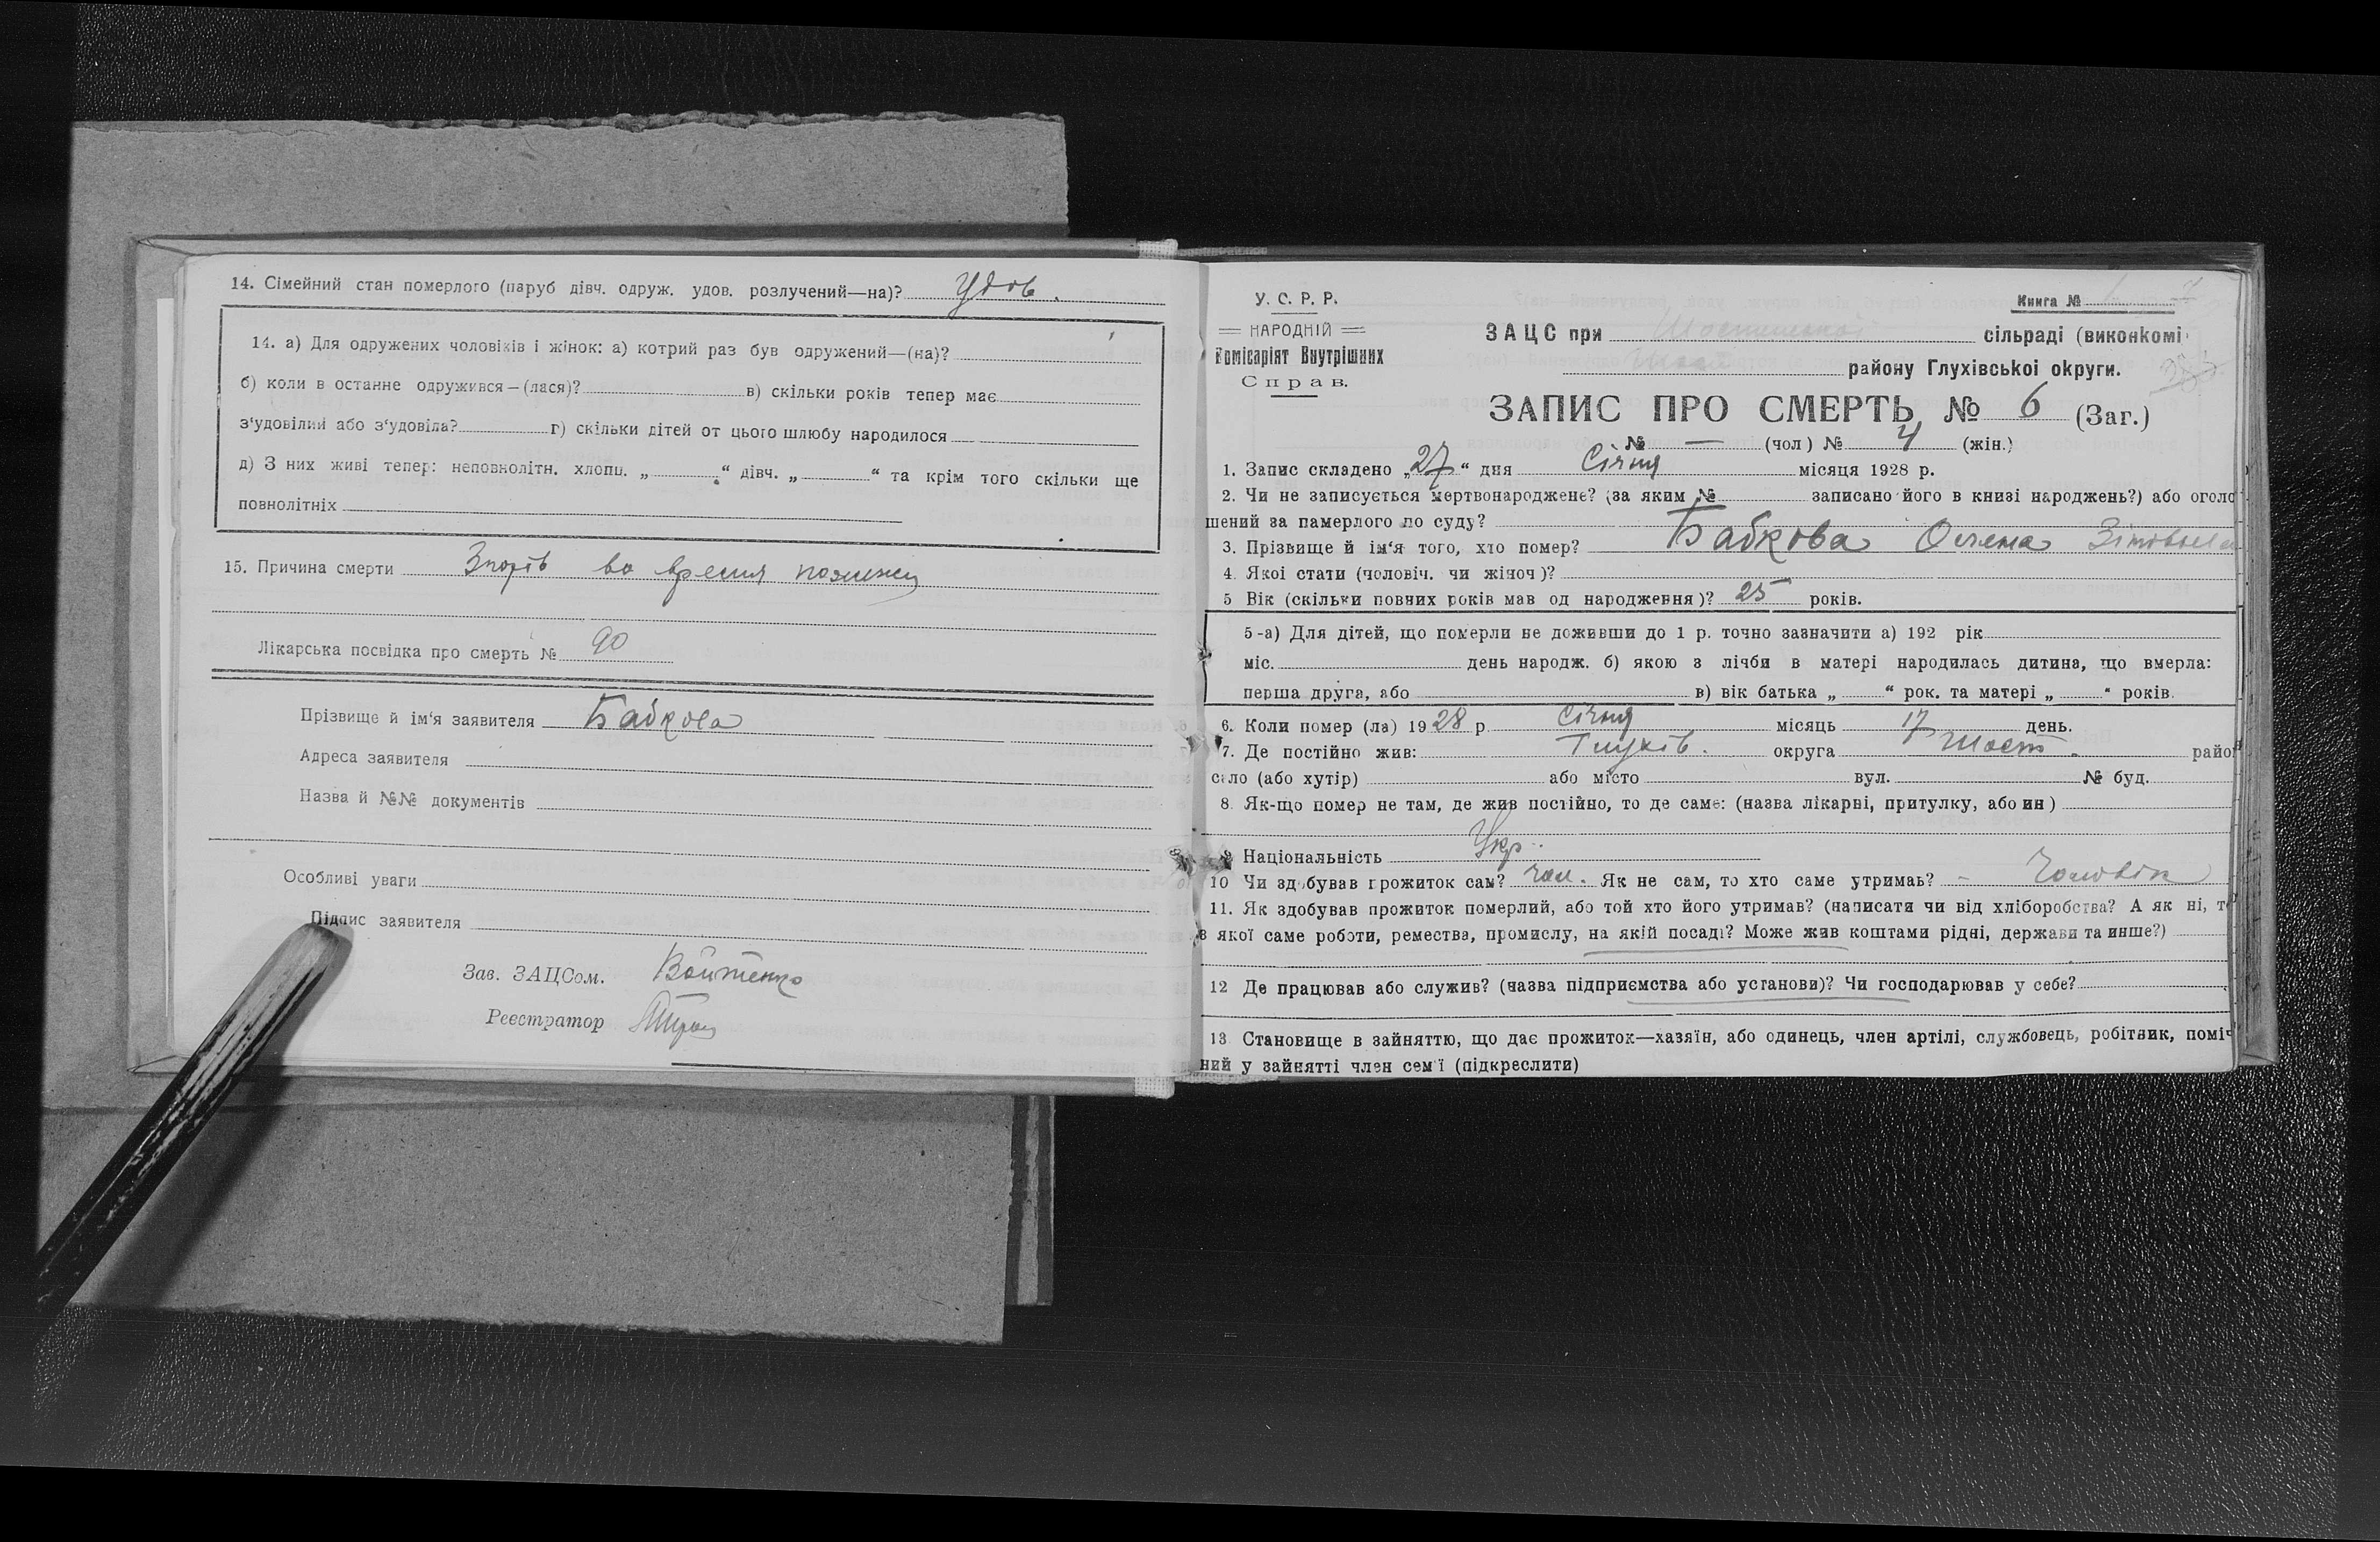 14. Сімейний стан померлого (паруб дівч. одруж. удов. розлучений—на)? Удов.
14. а) Для одружених чоловіків і жінок: а) котрий раз був одружений—(на)?
б) коли в останне одружився—(лася)? в) скільки років тепер має
з'удовілий або з'удовіла? г) скільки дітей от цього шлюбу народилося
д) З них живі тепер: неповнолітн. хлопц. „ “ дівч. „ “ та крім того скільки ще
повнолітніх
15. Причина смерти во время
Лікарська посвідка про смерть № 90
Прізвище й ім'я заявителя Бабкова
Адреса заявителя
Назва й №№ документів
Особливі уваги
Підпис заявителя
Зав. ЗАЦСом. Войтенко
Реестратор
У. С. Р. Р.
НАРОДНІЙ
Комісаріят Внутрішних
Справ.
Книга №
ЗАЦС при сільраді (виконкомі
району Глухівської округи.
ЗАПИС ПРО СМЕРТЬ № 6 (Заг.)
№ — (чол) № 4 (жін.)
1. Запис складено „27“ дня Січня місяця 1928 р.
2. Чи не записується мертвонароджене? (за яким № записано його в книзі народжень?) або оголо
шений за памерлого по суду?
3. Прізвище й ім'я того, хто помер? Бабкова
4. Якої стати (чоловіч. чи жіноч)?
5 Вік (скільки повних років мав од народження)? 25 років.
5-а) Для дітей, що померли не доживши до 1 р. точно зазначити а) 192 рік
міс. день народж. б) якою з лічби в матері народилась дитина, що вмерла:
перша друга, або в) вік батька „ “ рок. та матері „ “ років.
6. Коли помер (ла) 1928 р. Січня місяць 17 день.
7. Де постійно жив: Глухів. округа Шост. район
село (або хутір) або місто вул. № буд.
8. Як-що помер не там, де жив постійно, то де саме: (назва лікарні, притулку, або ин)
9 Національність Укр.
10 Чи здобував прожиток сам? Як не сам, то хто саме утримав? – Чоловік
11. Як здобував прожиток померлий, або той хто його утримав? (написати чи від хліборобства? А як ні, то
з якої саме роботи, ремества, промислу, на якій посаді? Може жив коштами рідні, держави та инше?)
12 Де працював або служив? (назва підприємства або установи)? Чи господарював у себе?
13 Становище в зайняттю, що дає прожиток—хазяїн, або одинець, член артілі, службовець, робітник, поміч
ний у зайнятті член сем'ї (підкреслити)